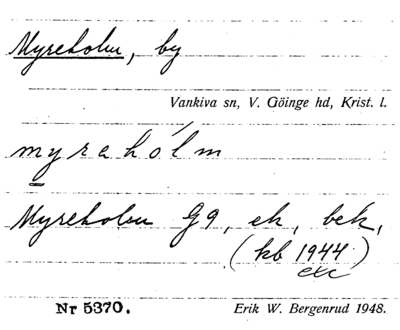 Myreholm, by
Vankiva sn, V. Göinge hd, Krist. l.
myrahólm
Myreholm G9, ek, bek,
(kb 1944)
exc
Nr 5370.
Erik W. Bergenrud 1948.